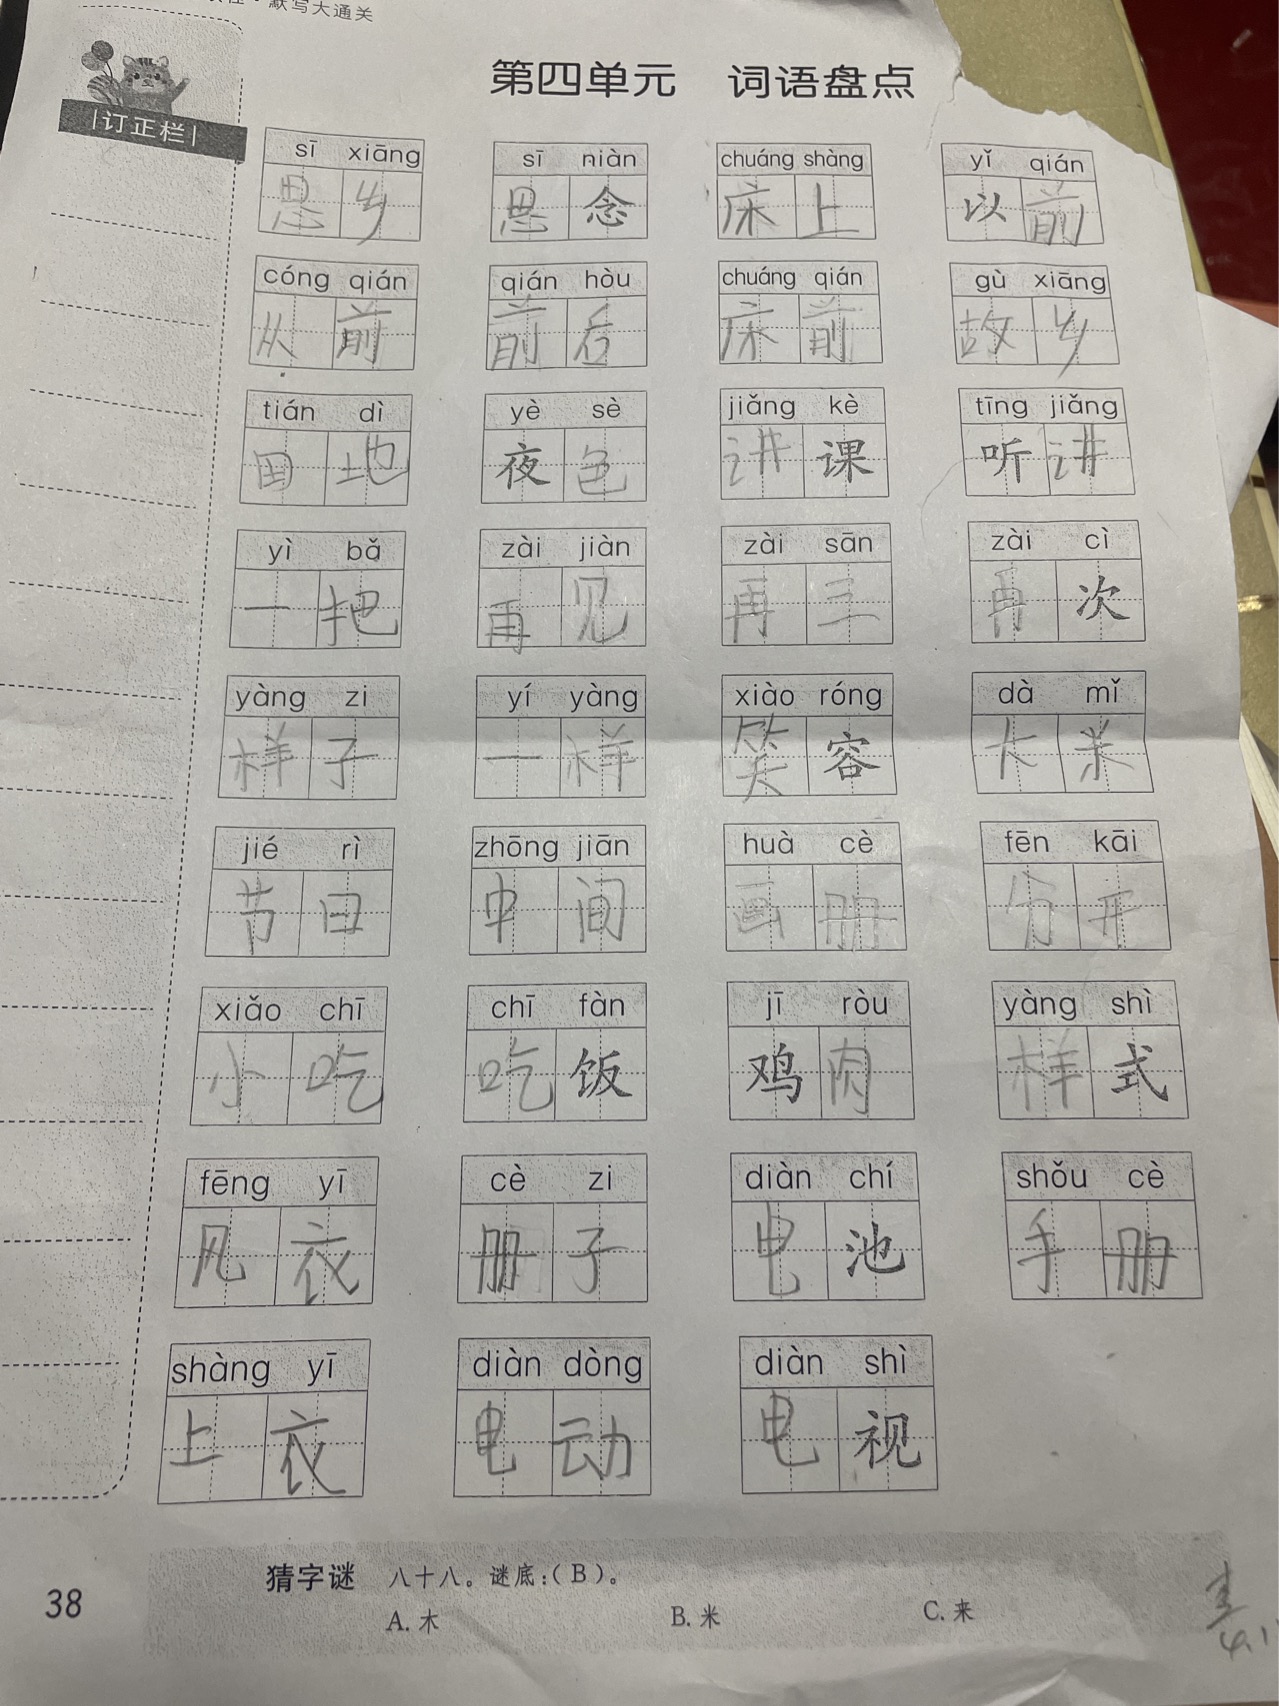 默写大通关
第四单元 词语盘点
订正栏
sī xiāng sī niàn chuáng shàng yǐ qián
思乡 思念 床上 以前
cóng qián qián hòu chuáng qián gù xiāng
从前 前后 床前 故乡
tián dì yè sè jiǎng kè tīng jiǎng
田地 夜色 讲课 听讲
yì bǎ zài jiàn zài sān zài cì
一把 再见 再三 再次
yàng zi yí yàng xiào róng dà mǐ
样子 一样 笑容 大米
jié rì zhōng jiān huà cè fēn kāi
节日 中间 画册 分开
xiǎo chī chī fàn jī ròu yàng shì
小吃 吃饭 鸡肉 样式
fēng yī cè zi diàn chí shǒu cè
风衣 册子 电池 手册
shàng yī diàn dòng diàn shì
上衣 电动 电视
猜字谜 八十八。谜底:(B)。
A. 木 B. 米 C. 来
38